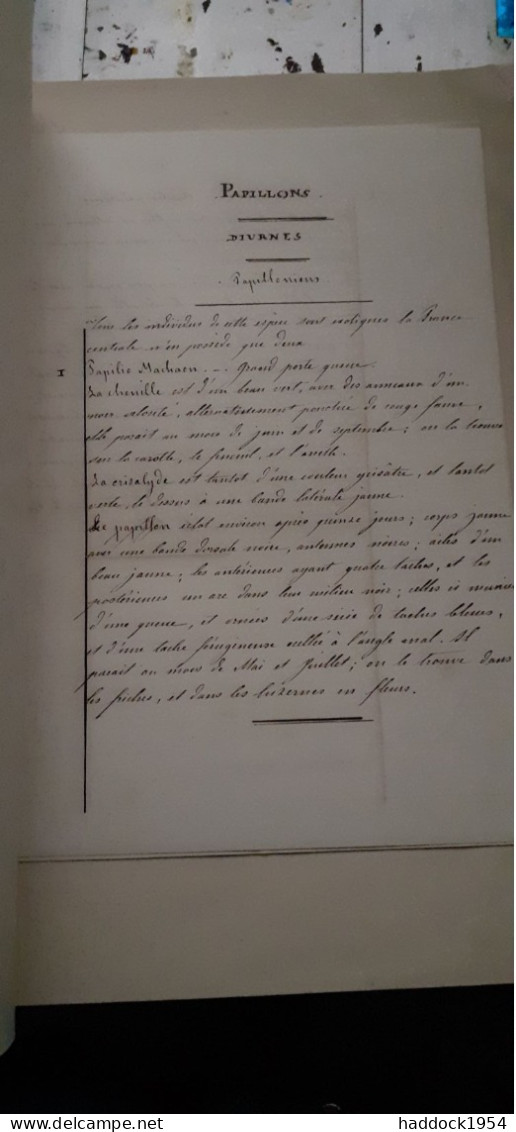 PAPILLONS.
DIURNES
Papilloniens
Tous les individus de cette espèce sont exotiques la France
centrale n'en possède que deux
1 Papilio Machaon _ . _ Grand porte queue.
La chenille est d'un beau vert, avec des anneaux d'un
noir velouté, alternativement ponctués de rouge fauve,
elle parait au mois de juin et de septembre; on la trouve
sur la carotte, le fenouil, et l'aneth.
La crisalyde est tantot d'une couleur grisâtre, et tantot
verte le dessus à une bande latérale jaune.
Le papillon éclot environ après quinze jours; corps jaune
avec une bande dorsale noire, antennes noires; ailes d'un
beau jaune; les antérieures ayant quatre taches, et les
postérieures un arc dans leur milieu noir; celles ci munies
d'une queue, et ornées d'une série de taches bleues,
et d'une tache férugineuse œillée à l'angle anal. Il
parait au mois de Mai et Juillet; on le trouve dans
les friches, et dans les luzernes en fleurs.
haddock1954